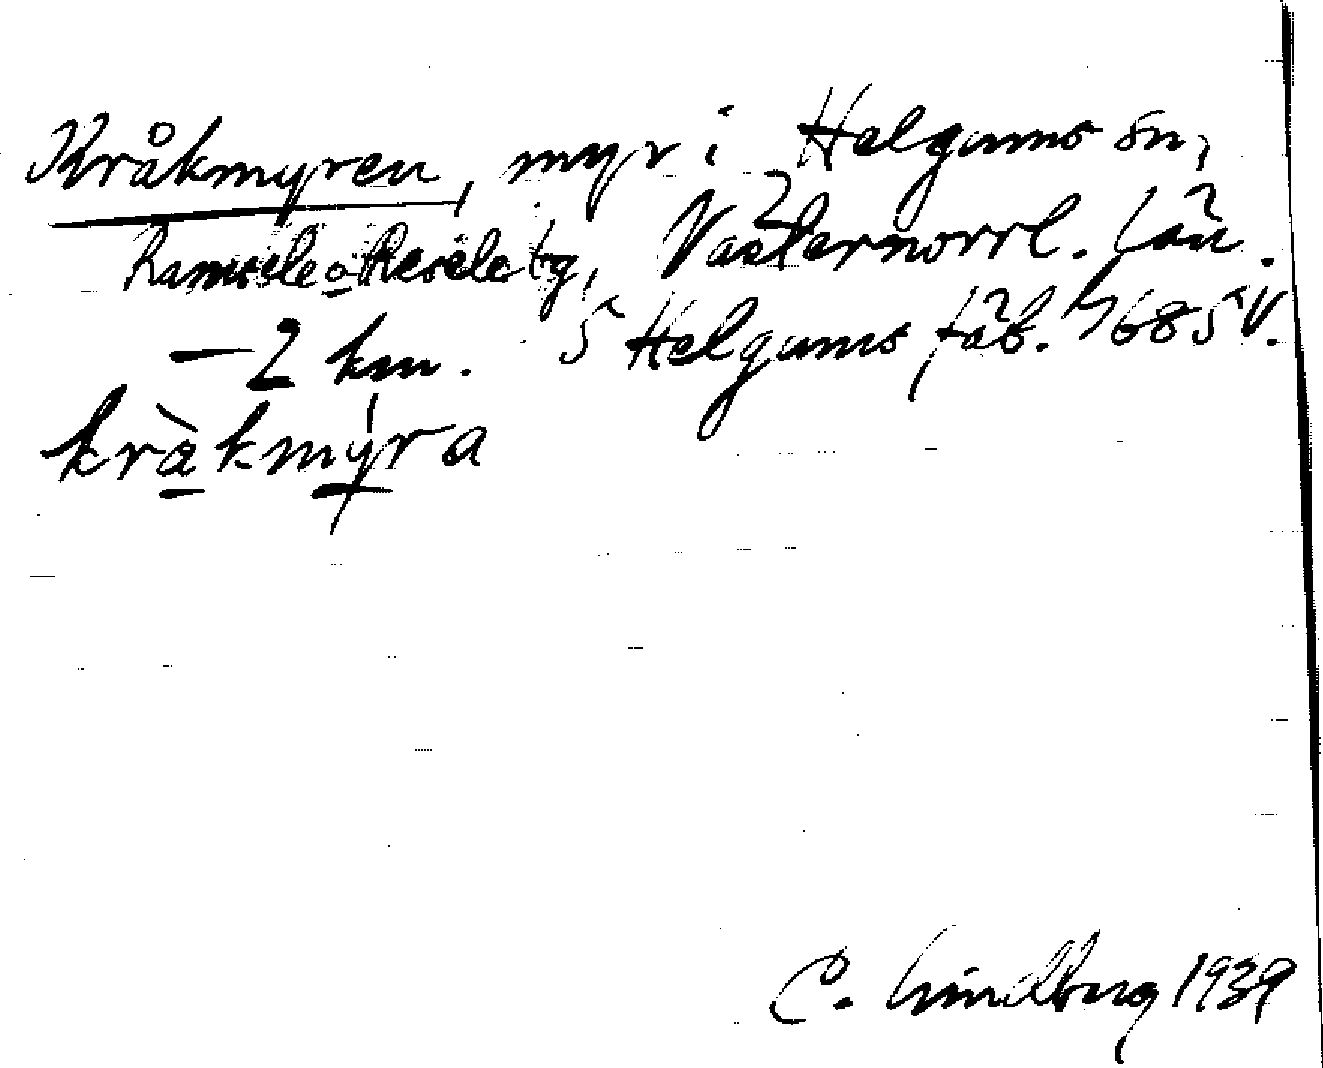 Kråkmyren, myr i Helgums sn,
Ramsele o Resele tg, Västernorrl. län.
— 2 km. S Helgums fäb. 685 V.
kràkmýra
C. Lindberg 1939